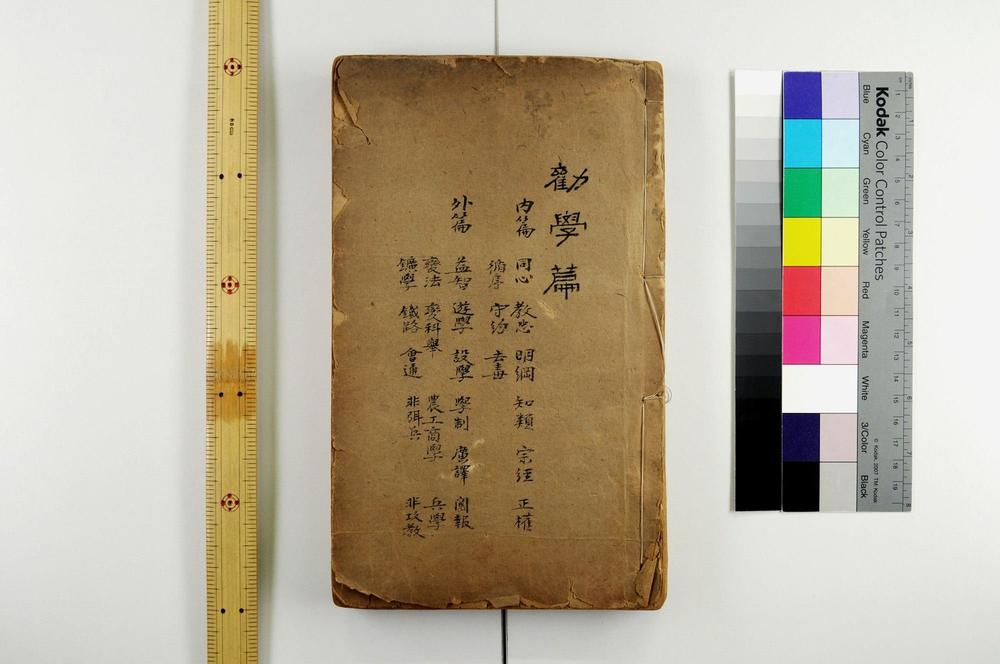 勸學篇
內篇 同心 教忠 明綱 知類 宗經 正權
循序 守約 去毒
外篇 益智 遊學 設學 學制 廣譯 閱報
變法 變科舉 農工商學 兵學
鑛學 鐵路 會通 非弭兵 非攻教
Kodak Color Control Patches
Blue Cyan Green Yellow Red Magenta White 3/Color Black
© Kodak, 2007 TM: Kodak